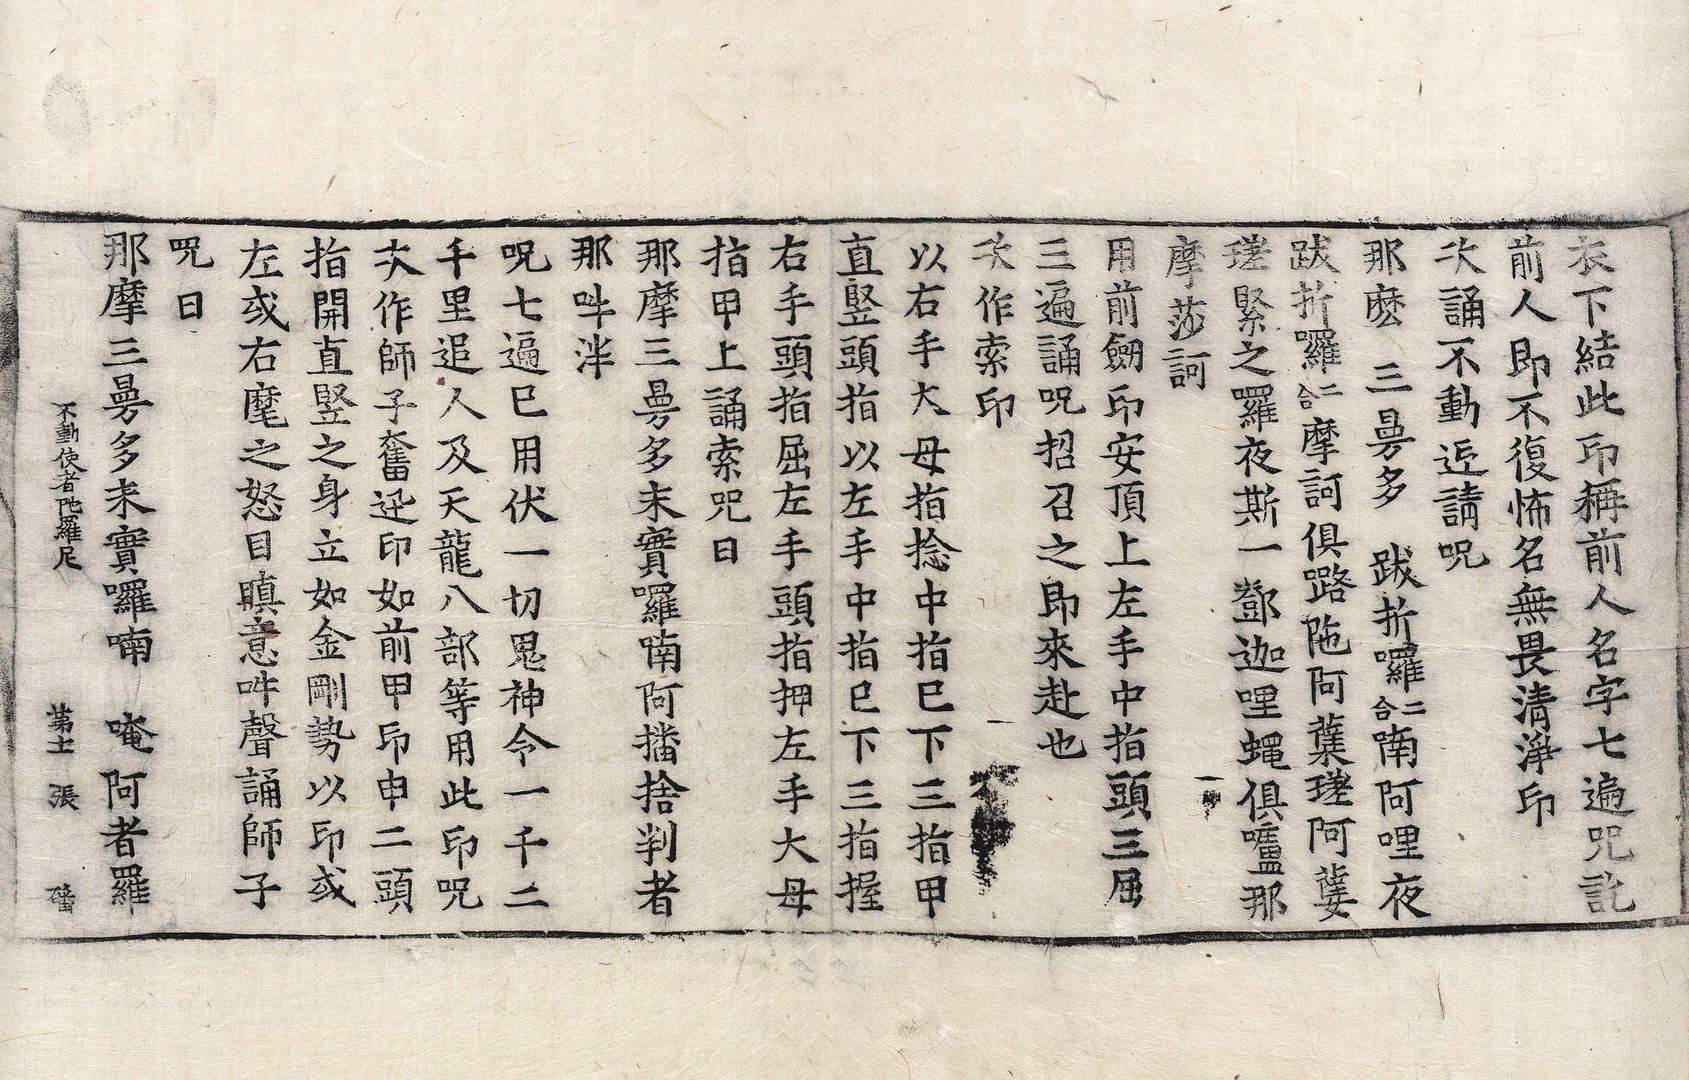 衣下結此印稱前人名字七遍咒訖
前人即不復怖名無畏清淨印
次誦不動迎請呪
那麽 三曼多 跋折囉二合喃阿哩夜
跋折囉二合摩訶俱路陁阿蕖瑳阿蕖
瑳緊之羅夜斯一鄧迦哩蠅俱嚧那
摩莎訶
用前劒印安頂上左手中指頭三屈
三遍誦呪招召之即來赴也
次作索印
以右手大母指捻中指已下三指甲
直竪頭指以左手中指已下三指握
右手頭指屈左手頭指押左手大母
指甲上誦索呪曰
那摩三曼多末寶囉喃阿播捨判者
那吽泮
呪七遍已用伏一切鬼神令一千二
千里追人及天龍八部等用此印呪
次作師子奮迅印如前甲印申二頭
指開直竪之身立如金剛勢以印或
左或右麾之怒目瞋意吽聲誦師子
呪曰
那摩三曼多末寶囉喃 唵阿者羅
不動使者陁羅尼 第十 張